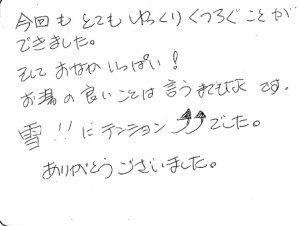 今回も とても ゆっくり くつろぐ ことが
できました。
そして おなか いっぱい!
お湯の良いことは言うまでもなく です。
雪!!にテンション⤴⤴でした。
ありがとうございました。